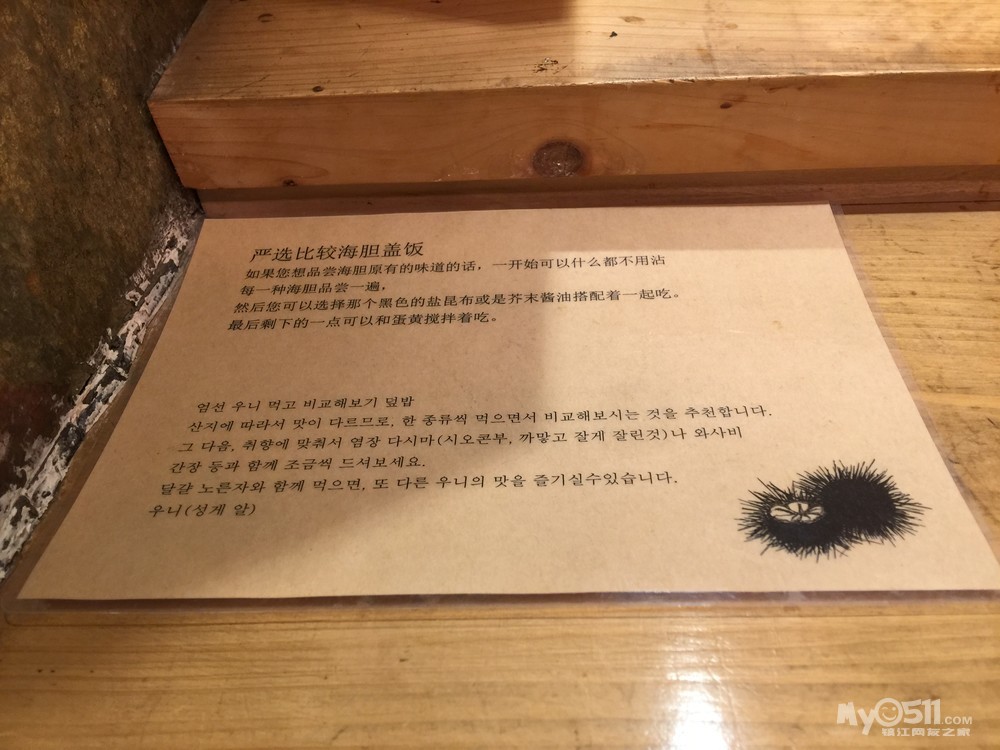 严选比较海胆盖饭
如果您想品尝海胆原有的味道的话，一开始可以什么都不用沾
每一种海胆品尝一遍，
然后您可以选择那个黑色的盐昆布或是芥末酱油搭配着一起吃。
最后剩下的一点可以和蛋黄搅拌着吃。
엄선 우니 먹고 비교해보기 덮밥
산지에 따라서 맛이 다르므로, 한 종류씩 먹으면서 비교해보시는 것을 추천합니다.
그 다음, 취향에 맞춰서 염장 다시마(시오콘부, 까맣고 잘게 잘린것)나 와사비
간장 등과 함께 조금씩 드셔보세요.
달걀 노른자와 함께 먹으면, 또 다른 우니의 맛을 즐기실수있습니다.
우니(성게 알)
My0511.COM
镇江网友之家